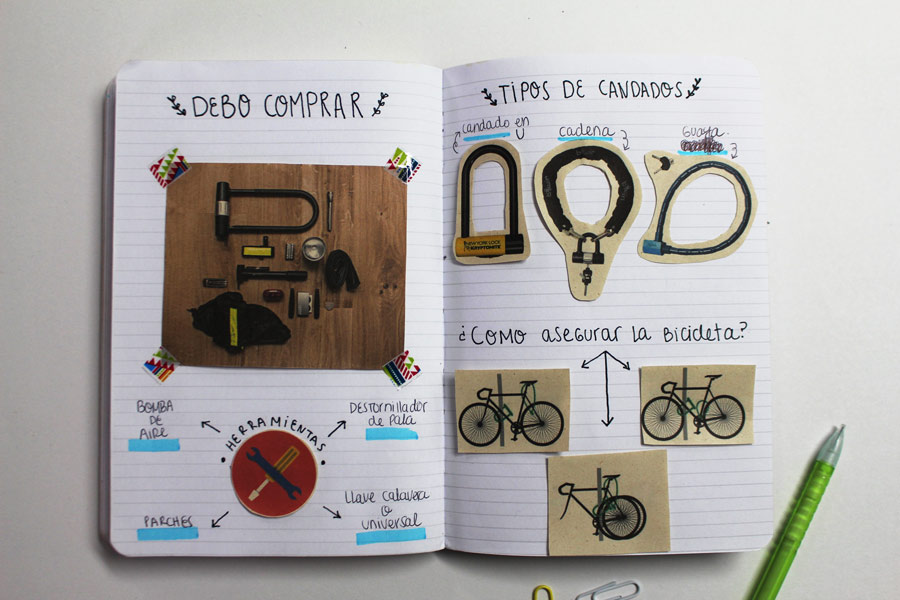 DEBO COMPRAR
BOMBA
DE
AIRE
HERRAMIENTAS
DESTORNILLADOR
de PALA
PARCHES
LLAVE CALAVERA
O
UNIVERSAL
TIPOS DE CANDADOS
candado en
U
cadena
Guaya
NEW YORK LOCK
KRYPTONITE
¿COMO asegurar la bicicleta?